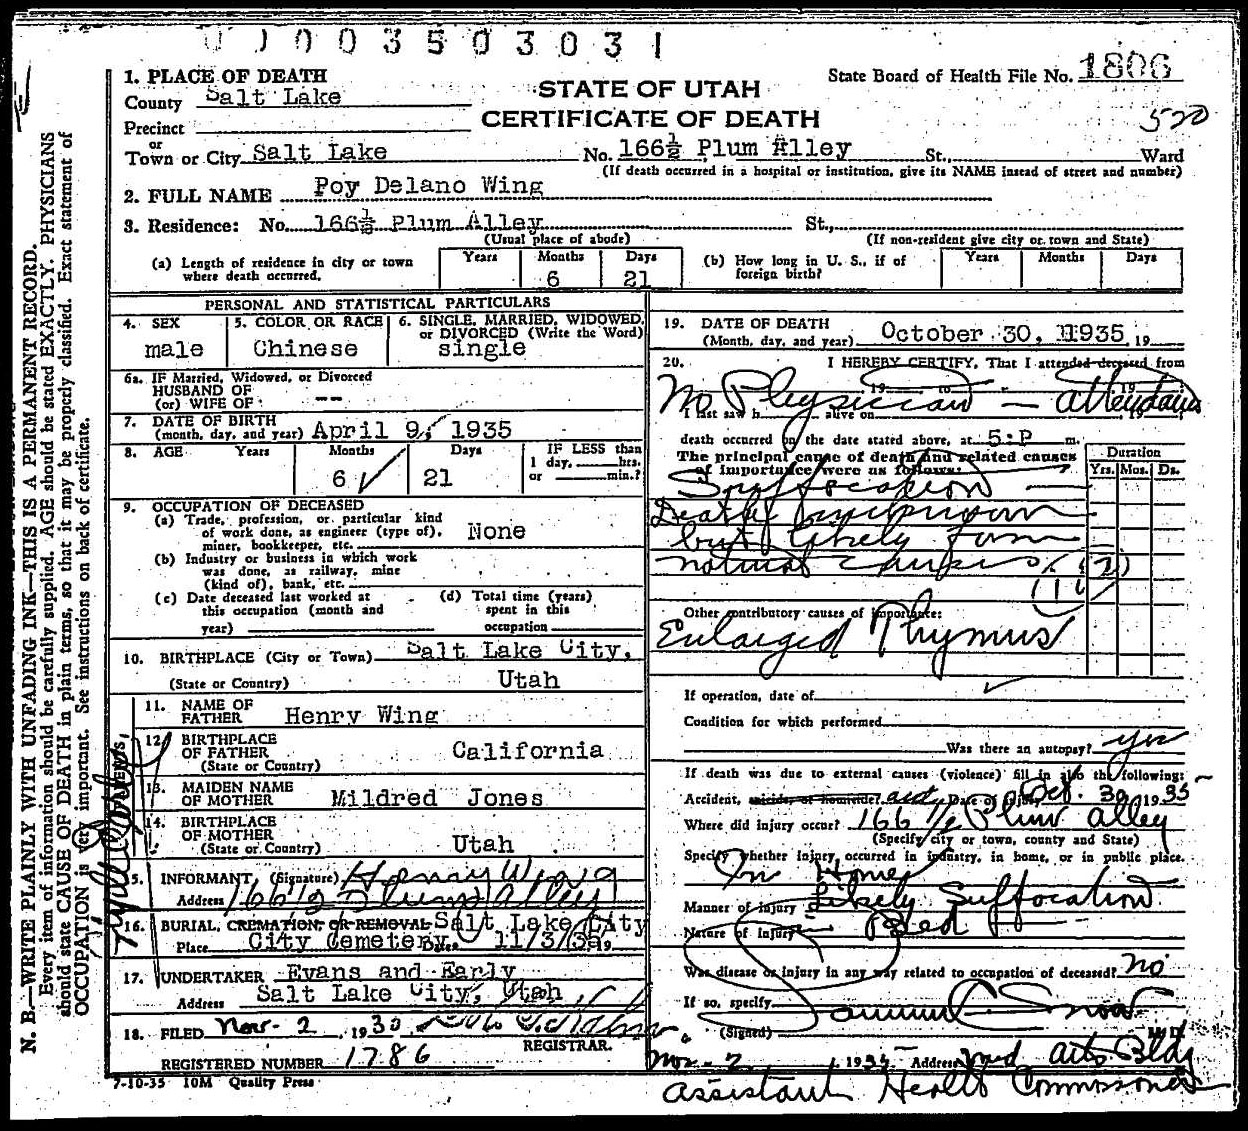 0 0 0 3 5 0 3 0 3 1
1. PLACE OF DEATH
County Salt Lake
Precinct
or
Town or City Salt Lake
STATE OF UTAH
CERTIFICATE OF DEATH
State Board of Health File No. 1806
520
No. 166½ Plum Alley St., Ward
(If death occurred in a hospital or institution, give its NAME instead of street and number)
2. FULL NAME Poy Delano Wing
3. Residence: No. 166½ Plum Alley St.,
(Usual place of abode) (If non-resident give city or town and State)
(a) Length of residence in city or town where death occurred. Years Months 6 Days 21
(b) How long in U. S., if of foreign birth? Years Months Days
PERSONAL AND STATISTICAL PARTICULARS
4. SEX male
5. COLOR OR RACE Chinese
6. SINGLE, MARRIED, WIDOWED, or DIVORCED (Write the Word) single
6a. IF Married, Widowed, or Divorced
HUSBAND OF
(or) WIFE OF --
7. DATE OF BIRTH
(month, day, and year) April 9, 1935
8. AGE Years Months 6 Days 21
IF LESS than
1 day, hrs.
or min.?
9. OCCUPATION OF DECEASED
(a) Trade, profession, or particular kind
of work done, as engineer (type of),
miner, bookkeeper, etc. None
(b) Industry or business in which work
was done, as railway, mine
(kind of), bank, etc.
(c) Date deceased last worked at
this occupation (month and
year)
(d) Total time (years)
spent in this
occupation
10. BIRTHPLACE (City or Town) Salt Lake City,
(State or Country) Utah
11. NAME OF
FATHER Henry Wing
12. BIRTHPLACE
OF FATHER California
(State or Country)
13. MAIDEN NAME
OF MOTHER Mildred Jones
14. BIRTHPLACE
OF MOTHER
(State or Country) Utah
PARENTS
15. INFORMANT (Signature) Henry Wing
Address 166½ Plum Alley
16. BURIAL, CREMATION, OR REMOVAL Salt Lake City
Place City Cemetery Date 11/3/35
17. UNDERTAKER Evans and Early
Address Salt Lake City, Utah
18. FILED Nov-2, 193
REGISTRAR.
REGISTERED NUMBER 1786
7-10-35 10M Quality Press
19. DATE OF DEATH
(Month, day, and year) October 30, 1935, 19
20. I HEREBY CERTIFY, That I attended deceased from
19 to 19
No Physician — Attendance
I last saw h alive on 19
death occurred on the date stated above, at 5:P m.
The principal cause of death and related causes
of importance were as follows:
Duration
Yrs. Mos. Ds.
Suffocation
Death
but likely from
natural causes.
Other contributory causes of importance:
Enlarged Thymus
If operation, date of
Condition for which performed
Was there an autopsy? yes
If death was due to external causes (violence) fill in also the following:
Accident, suicide, or homicide? Date of injury Oct. 30 1935
Where did injury occur? 166 1/2 Plum Alley
(Specify city or town, county and State)
Specify whether injury occurred in industry, in home, or in public place.
In Home
Manner of injury Likely Suffocation
Nature of Injury in Bed
Was disease or injury in any way related to occupation of deceased? No
If so, specify
(Signed) Samuel C Snow M. D.
Nov-2, 1935 Address Med Arts Bldg
Assistant Health Commissioner
N. B.—WRITE PLAINLY WITH UNFADING INK—THIS IS A PERMANENT RECORD.
Every item of information should be carefully supplied. AGE should be stated EXACTLY. PHYSICIANS
should state CAUSE OF DEATH in plain terms, so that it may be properly classified. Exact statement of
OCCUPATION is very important. See instructions on back of certificate.